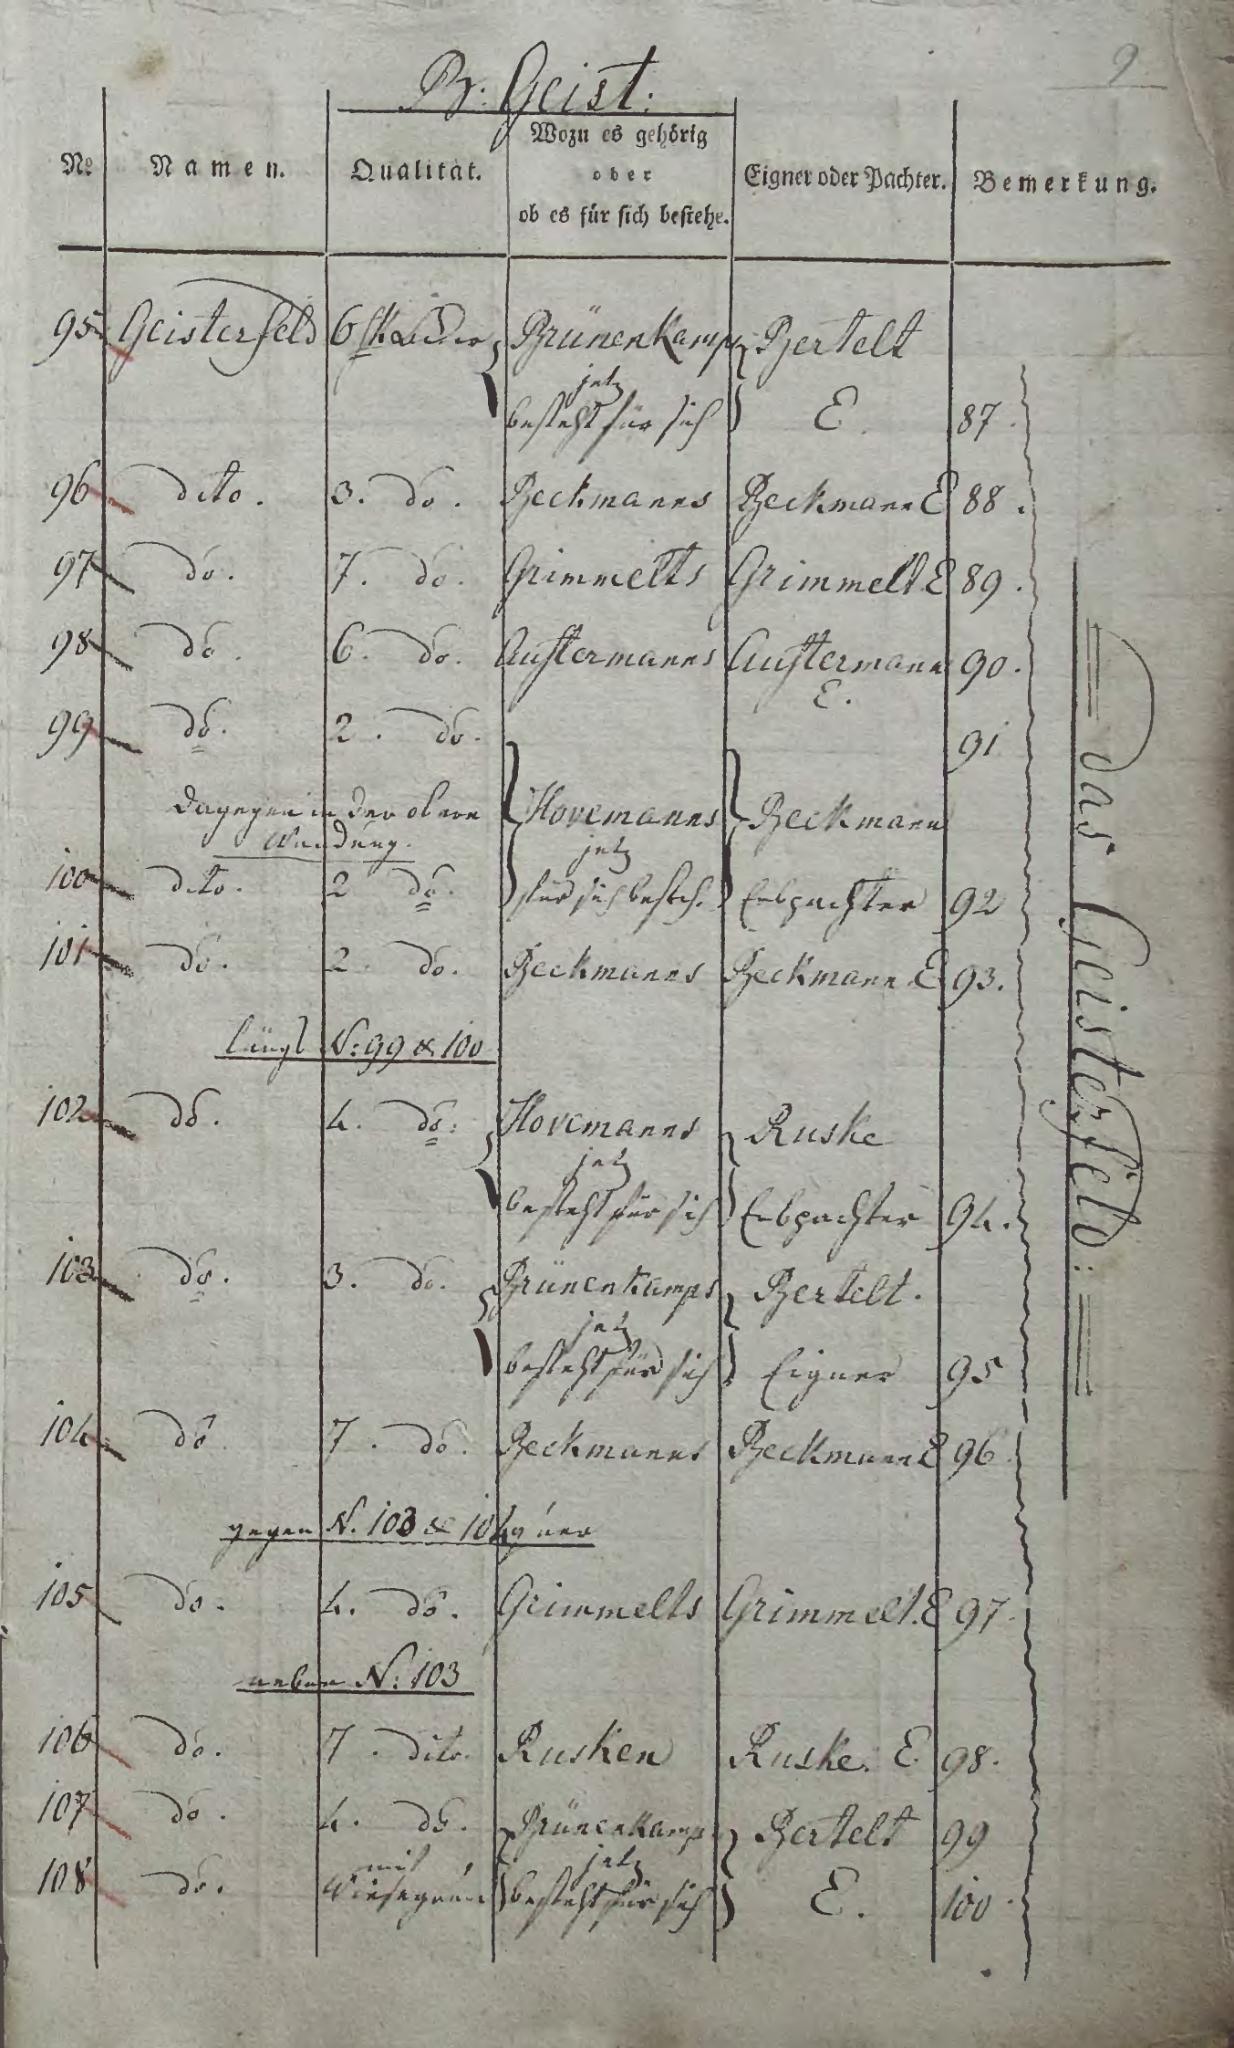 9
B: Geist:
No Namen. Qualität. Wozu es gehörig oder ob es für sich bestehe. Eigner oder Pachter. Bemerkung.
95 Geisterfeld 6 Brünenkamp Bertelt
jetz
besteht für sich E. 87.
96 dito. 3. do. Beckmanns Beckmann E 88.
97 do. 7. do. Grimmelts Grimmelt E 89.
98 do. 6. do. Austermanns Austermann 90.
E.
99 do. 2. do. 91
dagegen in der obern Hovemanns Beckmann
Wendung. jetz
100 dito. 2 do. für sich besteh. Erbpachter 92
101 do. 2 do. Beckmanns Beckmann E 93.
längs N: 99 & 100
102 do. 4. do: Hovemanns Ruske
jetz
besteht für sich Erbpachter 94.
103 do. 3. do. Brünenkamps Bertelt.
jetz
besteht für sich Eigner 95
104 do 7. do. Beckmanns Beckmann E 96
gegen N. 103 & 104
105 do. 4. do. Grimmelts Grimmelt. E 97.
neben N: 103
106 do. 7. dito. Rusken Ruske. E 98.
107 do. 4. do. Brünenkamp Bertelt 99
mit jetz
108 do. besteht für sich E. 100.
das Geisterfeld: